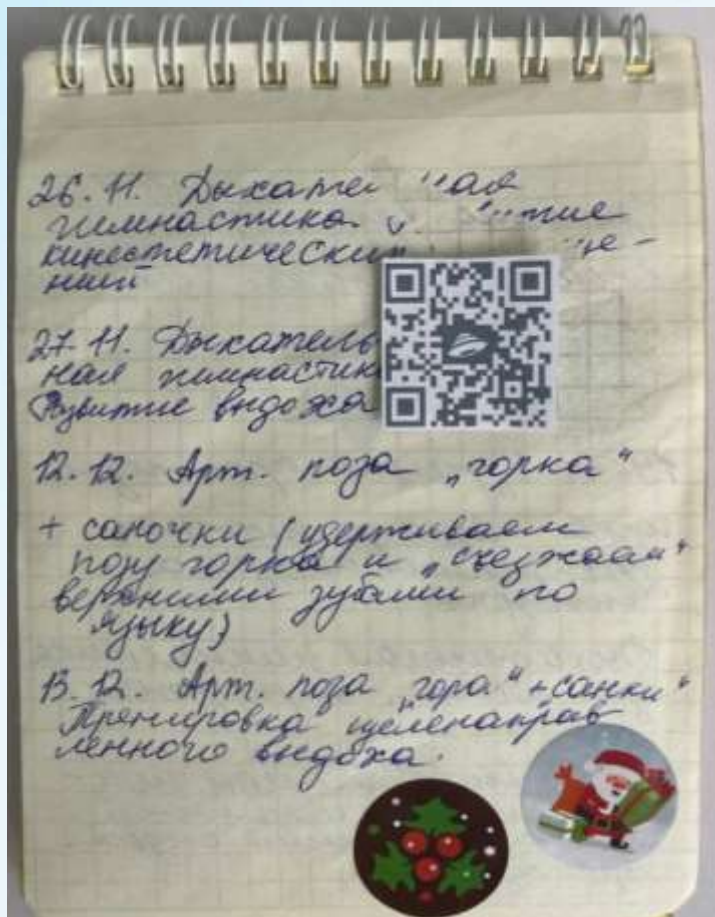 26.11. Дыхате
гимнастика.
кинестетически
ний
27.11. Дыхатель
ная гимнастик
Развитие выдоха
12.12. Арт. поза „горка“
+ саночки (удерживаем
позу горка и „съезжаем“
верхними зубами по
языку)
13.12. Арт. поза „гора“ + санки“
Тренировка целенаправ
ленного выдоха.